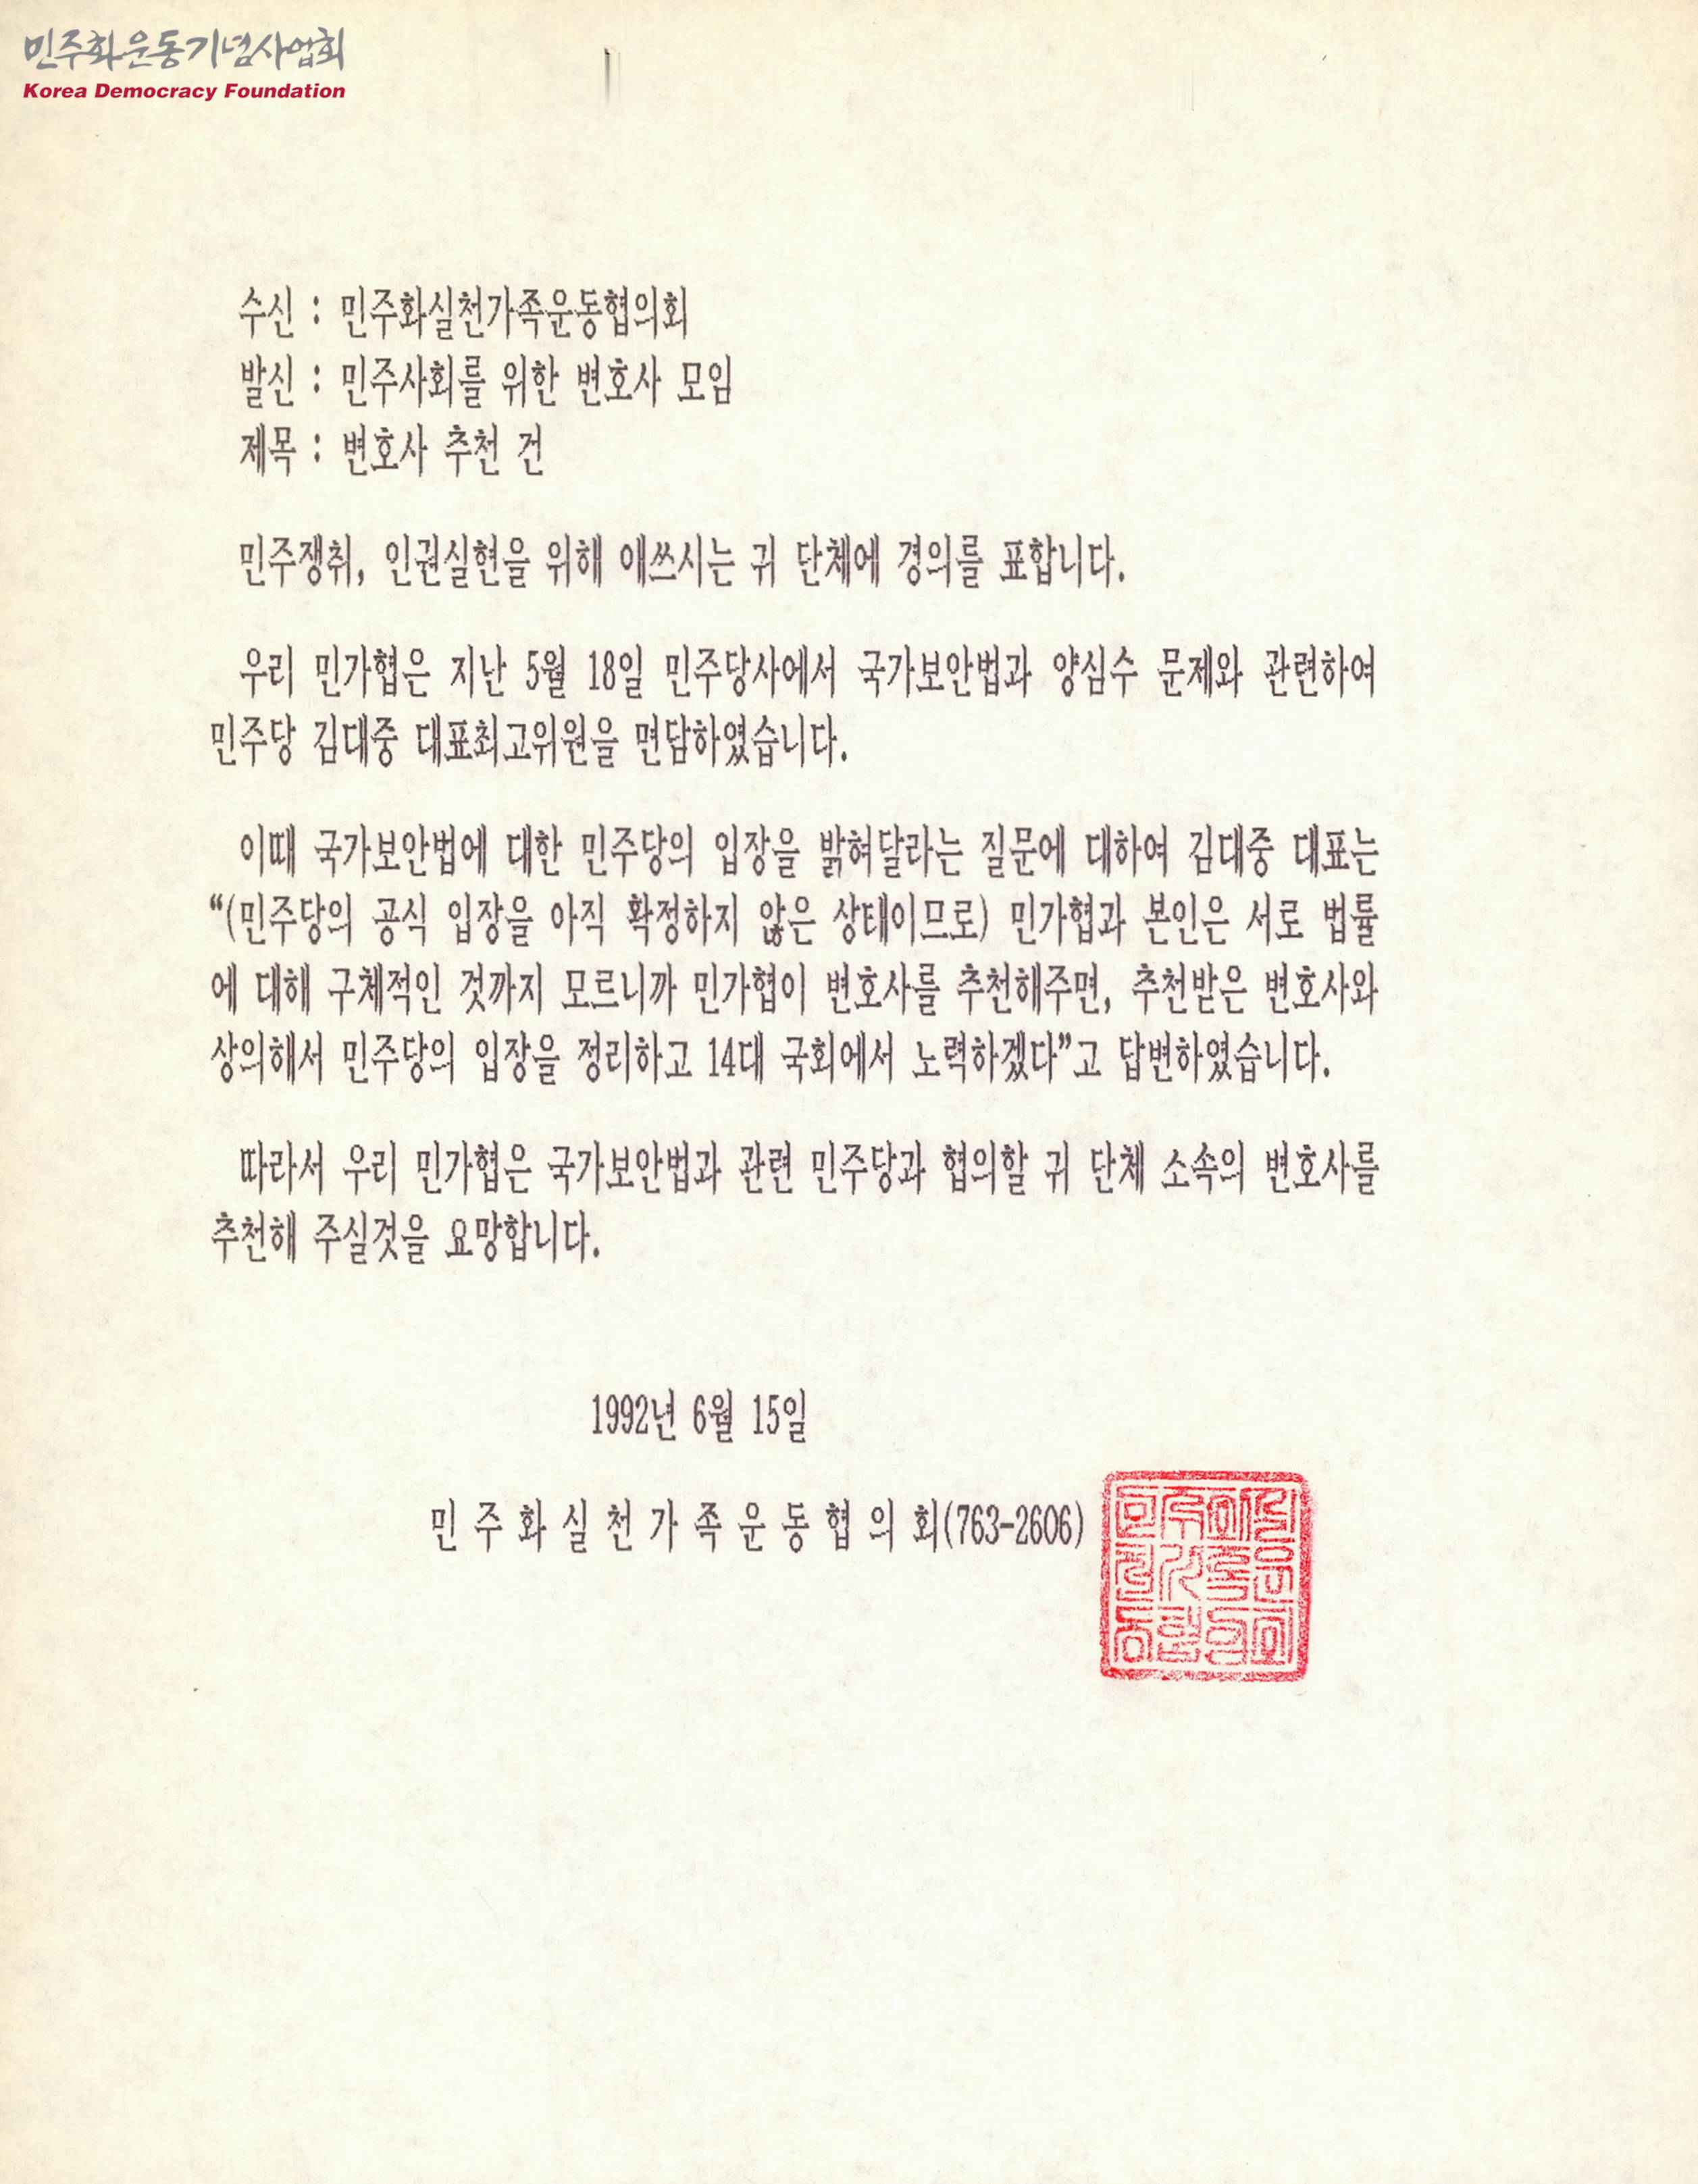 민주화운동기념사업회
Korea Democracy Foundation
수신 : 민주화실천가족운동협의회
발신 : 민주사회를 위한 변호사 모임
제목 : 변호사 추천 건
민주쟁취, 인권실현을 위해 애쓰시는 귀 단체에 경의를 표합니다.
우리 민가협은 지난 5월 18일 민주당사에서 국가보안법과 양심수 문제와 관련하여
민주당 김대중 대표최고위원을 면담하였습니다.
이때 국가보안법에 대한 민주당의 입장을 밝혀달라는 질문에 대하여 김대중 대표는
“(민주당의 공식 입장을 아직 확정하지 않은 상태이므로) 민가협과 본인은 서로 법률
에 대해 구체적인 것까지 모르니까 민가협이 변호사를 추천해주면, 추천받은 변호사와
상의해서 민주당의 입장을 정리하고 14대 국회에서 노력하겠다”고 답변하였습니다.
따라서 우리 민가협은 국가보안법과 관련 민주당과 협의할 귀 단체 소속의 변호사를
추천해 주실것을 요망합니다.
1992년 6월 15일
민 주 화 실 천 가 족 운 동 협 의 회(763-2606)
민주화실
천가족운
동협의회